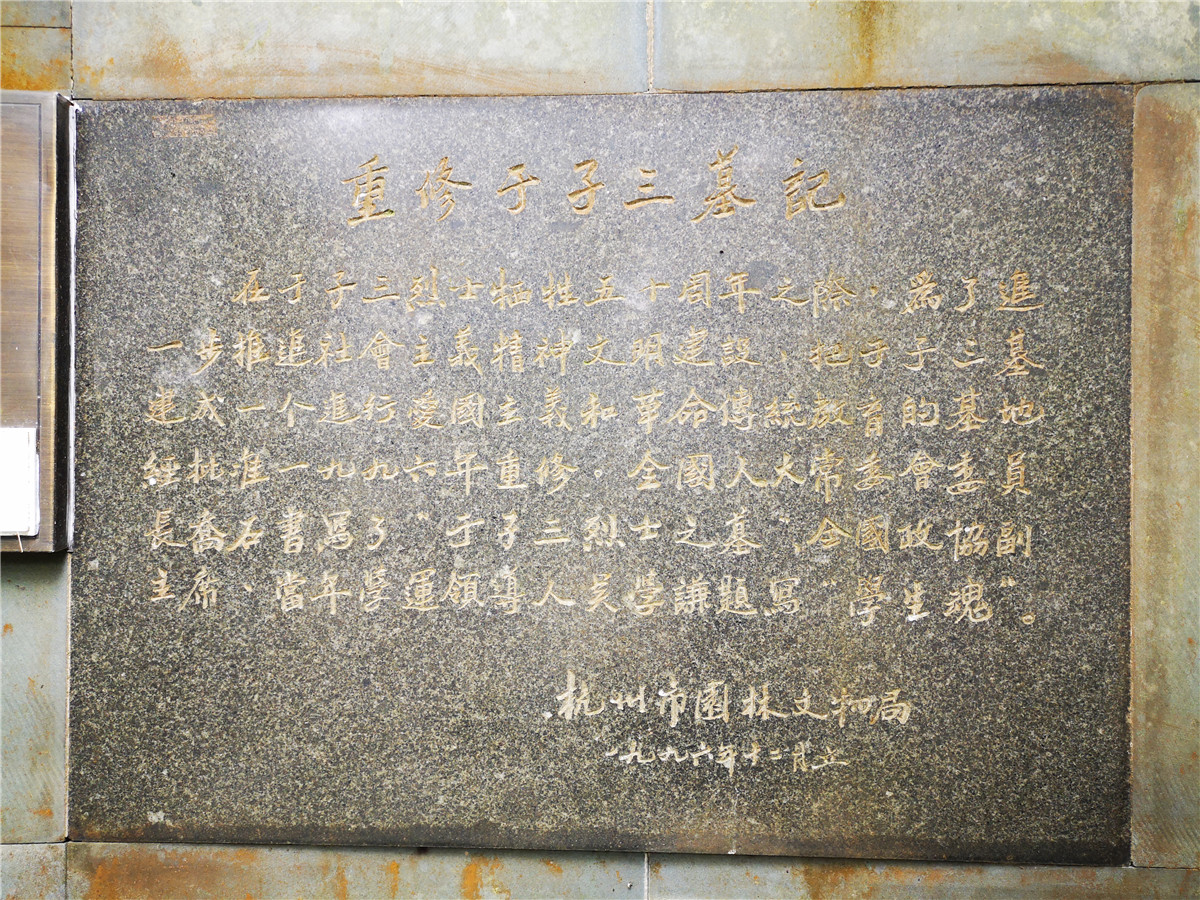 重修于子三墓記
在于子三烈士牺牲五十周年之際，為了進
一步推進社會主義精神文明建設、把于子三墓
建成一个進行愛國主義和革命傳統教育的基地
經批准一九九六年重修。全國人大常委會委員
長喬石書寫了“于子三烈士之墓”，全國政協副
主席、當年學運領導人吴學謙題寫“學生魂”。
杭州市園林文物局
一九九六年十二月立